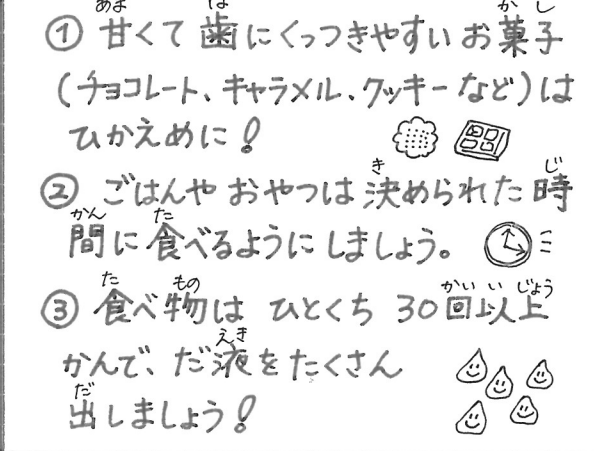 ① 甘くて歯にくっつきやすいお菓子
(チョコレート、キャラメル、クッキーなど)は
ひかえめに!
② ごはんや おやつは 決められた時
間に食べるように しましょう。
③ 食べ物は ひとくち 30回以上
かんで、だ液をたくさん
出しましょう!